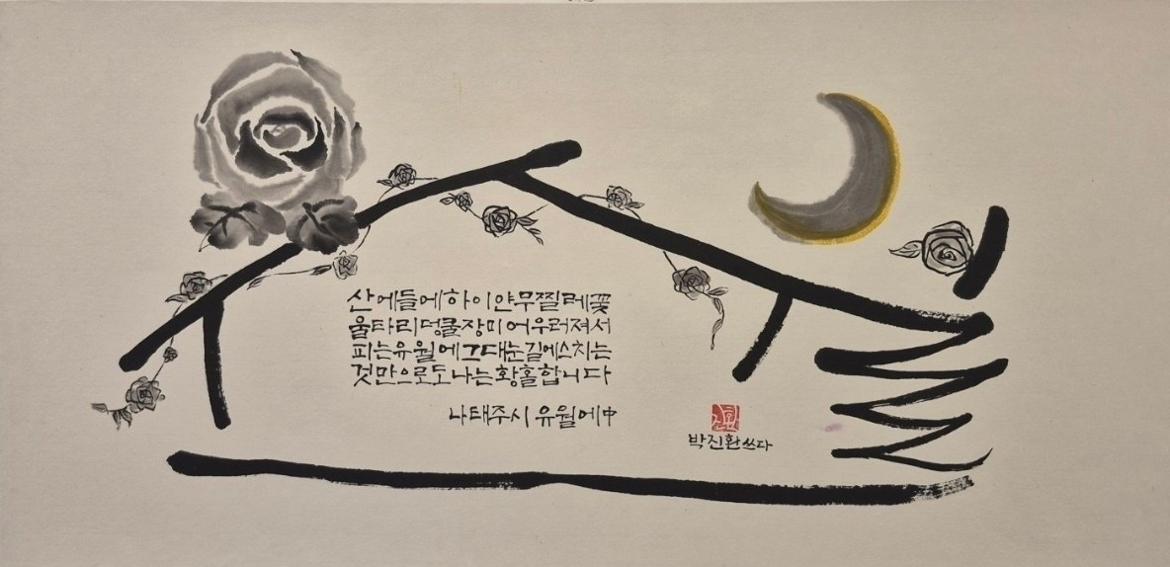 유월
산에들에하이얀무찔레꽃
울타리덩쿨장미어우러져서
피는유월에그대눈길에스치는
것만으로도나는황홀합니다
나태주시 유월에中
진환
박진환쓰다